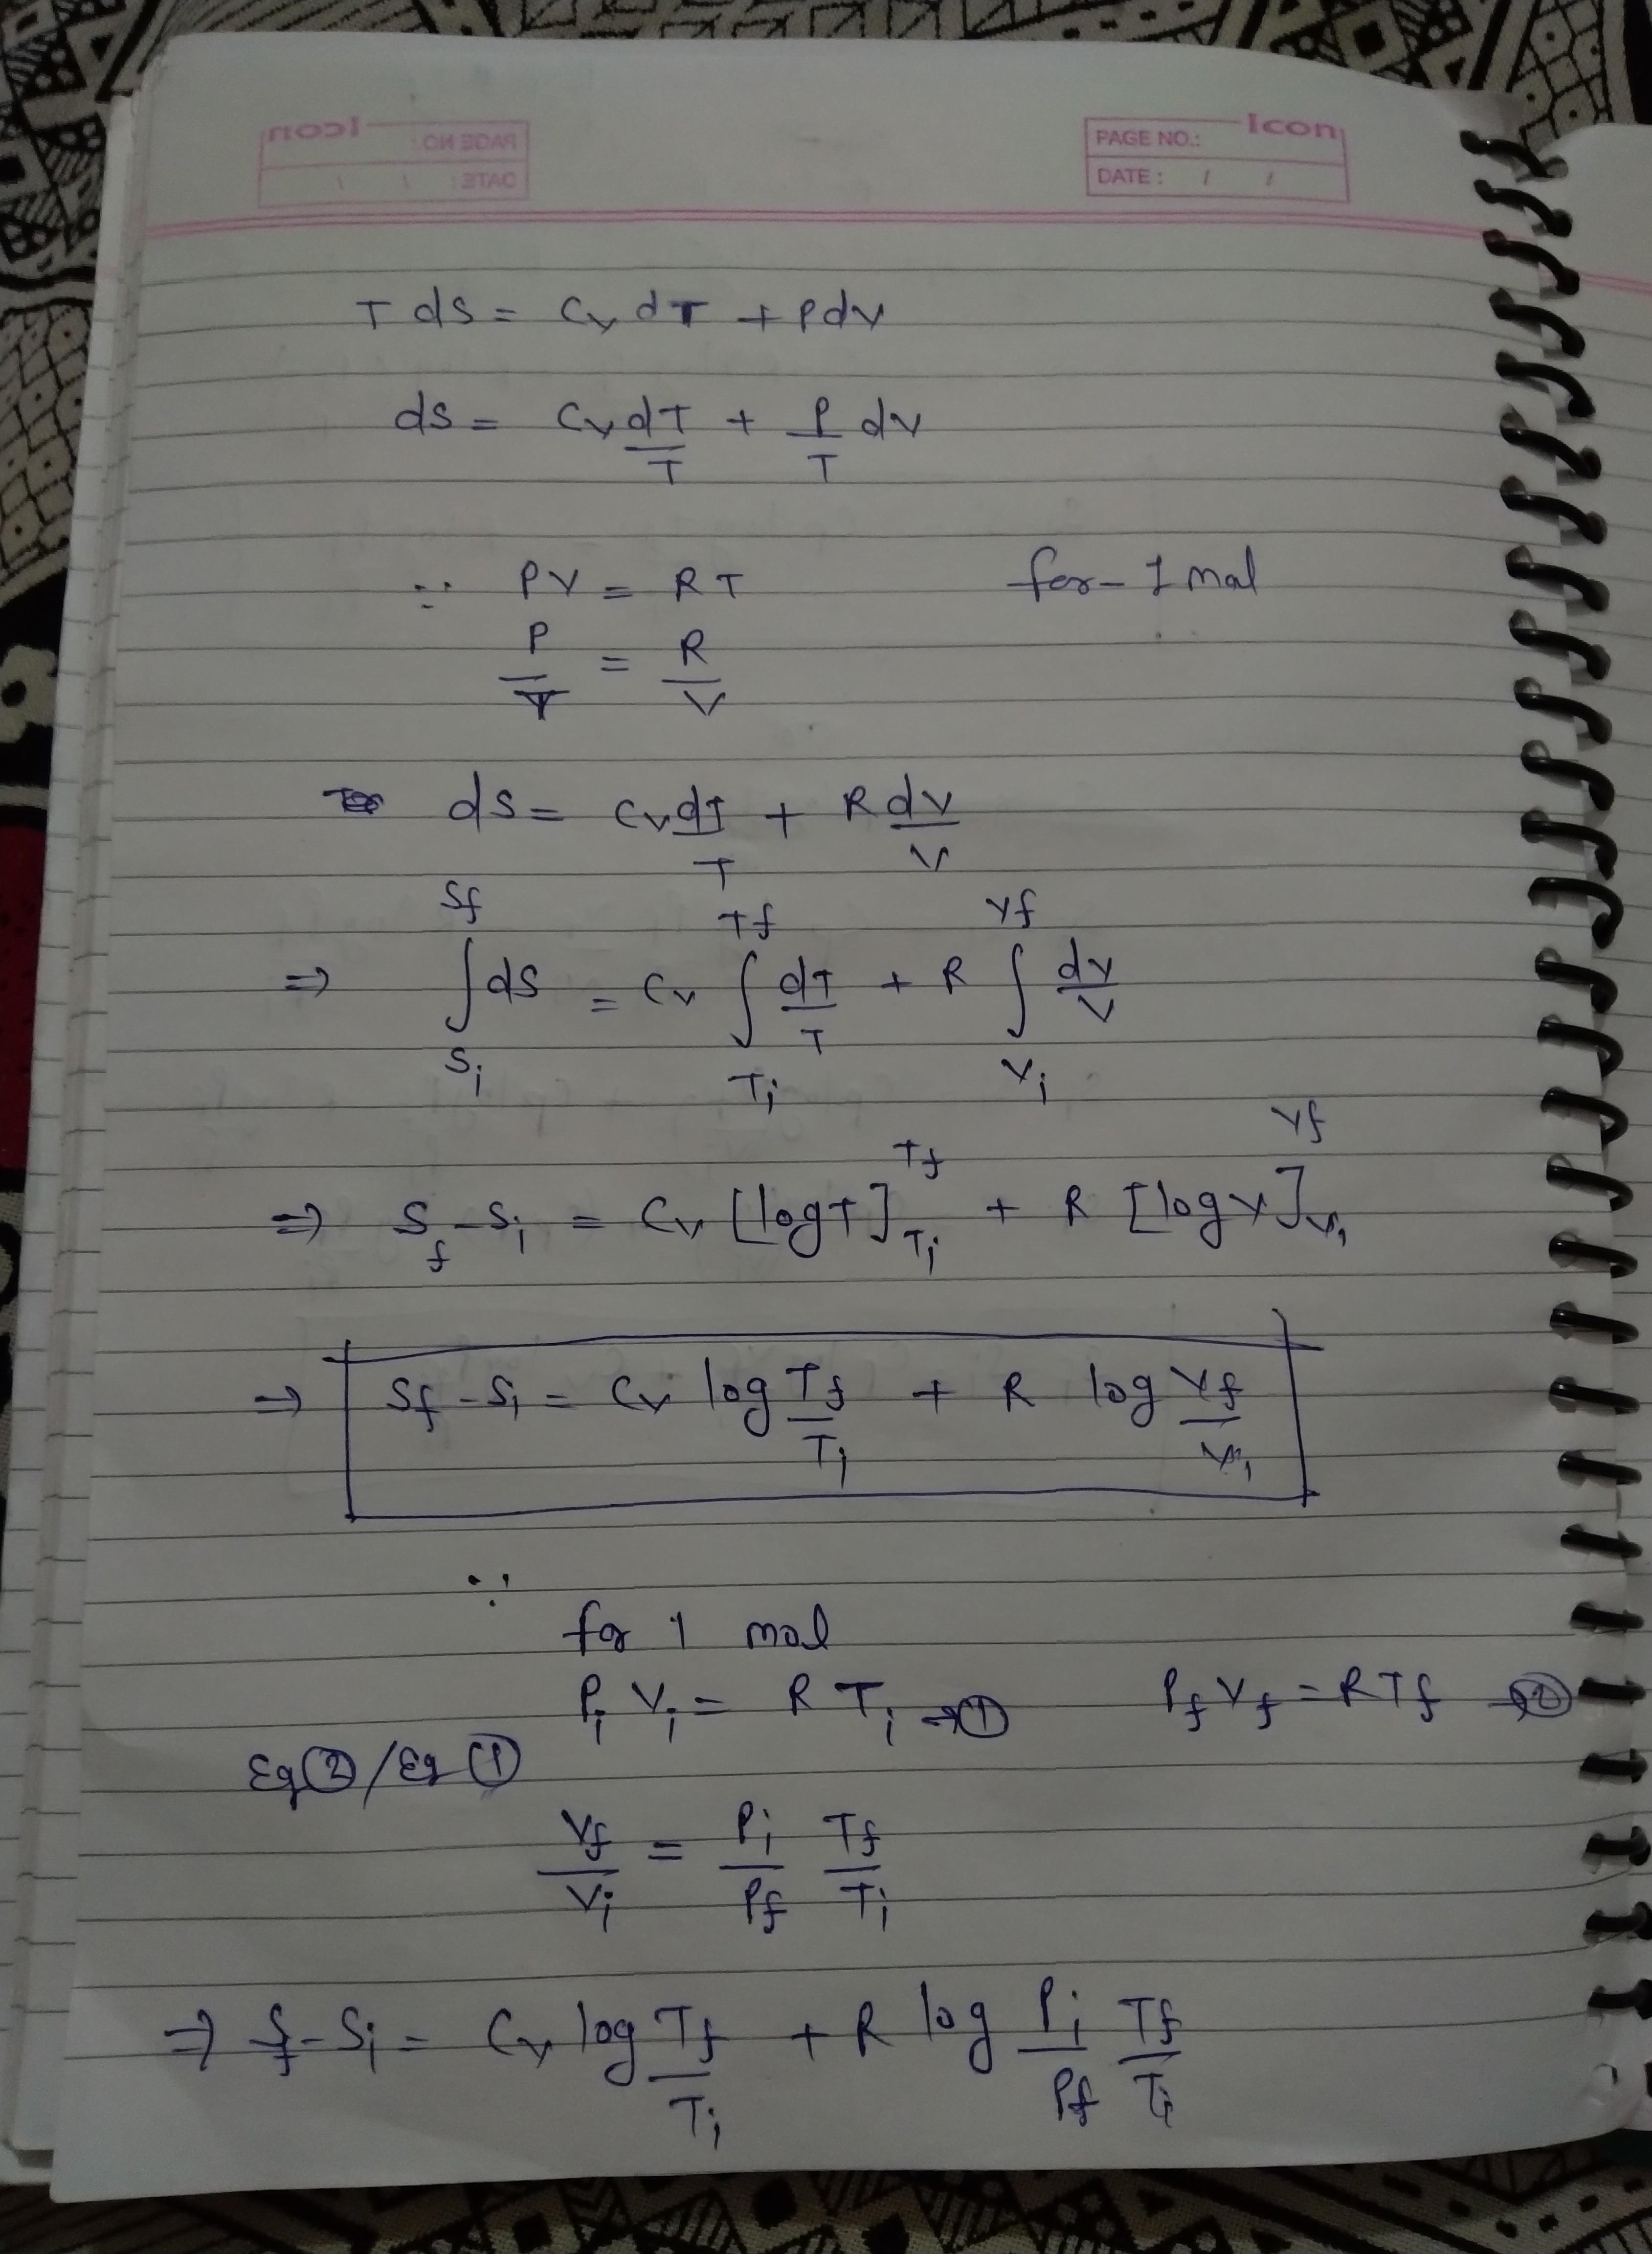 Icon
PAGE NO.:
DATE: / /
T dS = Cv dT + PdV
dS = Cv dT/T + P/T dV
∵ PV = RT for - 1 mol
P/T = R/V
dS = Cv dT/T + R dV/V
⇒ ∫_{Si}^{Sf} dS = Cv ∫_{Ti}^{Tf} dT/T + R ∫_{Vi}^{Vf} dV/V
⇒ Sf - Si = Cv [log T]_{Ti}^{Tf} + R [log V]_{Vi}^{Vf}
⇒ Sf - Si = Cv log Tf/Ti + R log Vf/Vi
∵
for 1 mol
Pi Vi = R Ti → ① Pf Vf = R Tf → ②
Eq ② / Eq ①
Vf/Vi = Pi/Pf Tf/Ti
⇒ Sf - Si = Cv log Tf/Ti + R log Pi/Pf Tf/Ti